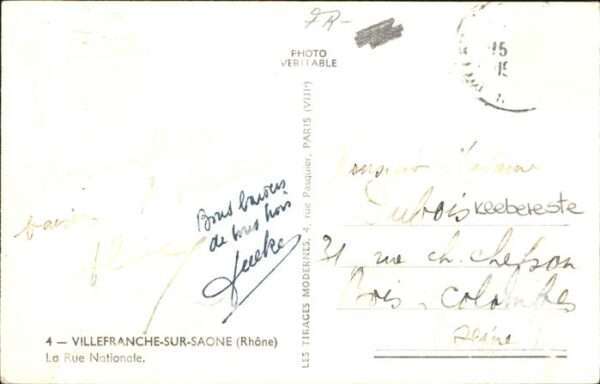 FR-
PHOTO
VERITABLE
15
Bons baisers
de tous trois
LES TIRAGES MODERNES, 4, rue Pasquier, PARIS (VIIIe)
Monsieur
Dubois
Keebereste
31 rue Ch. Chefson
Bois-Colombes
(Seine)
4 — VILLEFRANCHE-SUR-SAONE (Rhône)
La Rue Nationale.